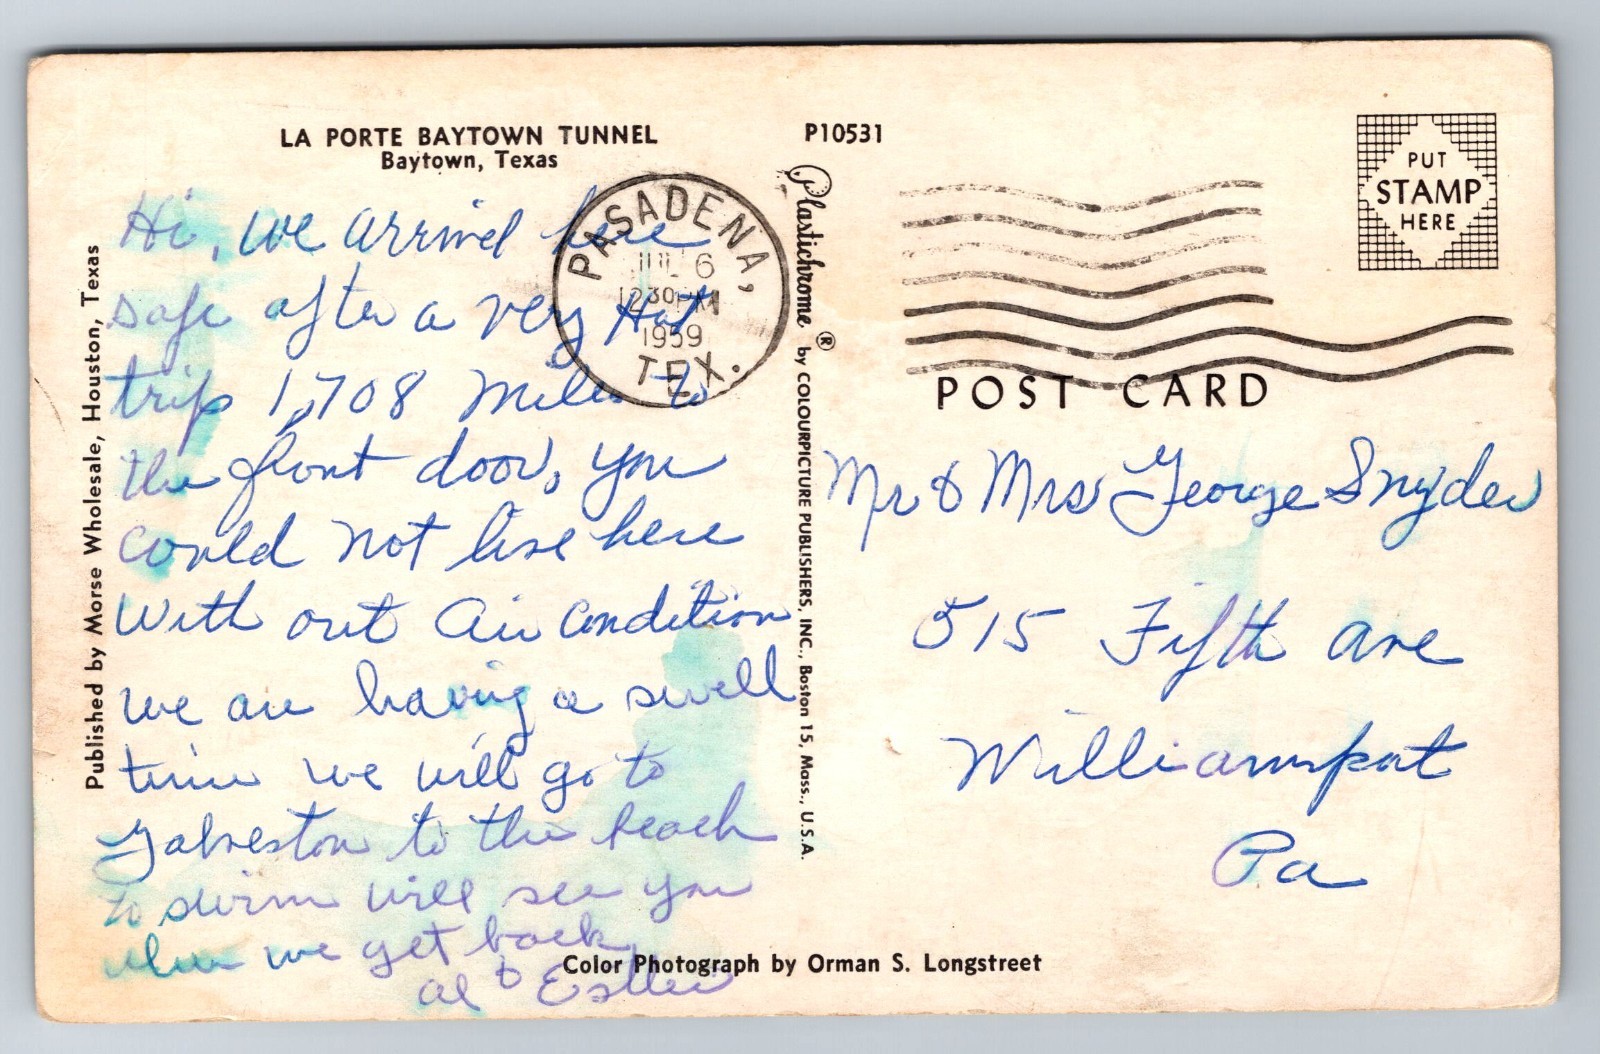 LA PORTE BAYTOWN TUNNEL
Baytown, Texas
P10531
PUT
STAMP
HERE
PASADENA,
JUL 6
1230 PM
1959
TEX.
POST CARD
Published by Morse Wholesale, Houston, Texas
Plastichrome ® by COLOURPICTURE PUBLISHERS, INC., Boston 15, Mass., U.S.A.
Hi, we arrived here
safe after a very Hot
trip 1,708 Miles to
the front door, you
could not live here
With out Air Condition
we are having a swell
time we will go to
Galveston to the beach
to swim will see you
when we get back
Al & Esther
Mr & Mrs George Snyder
515 Fifth Ave
Williamsport
Pa
Color Photograph by Orman S. Longstreet